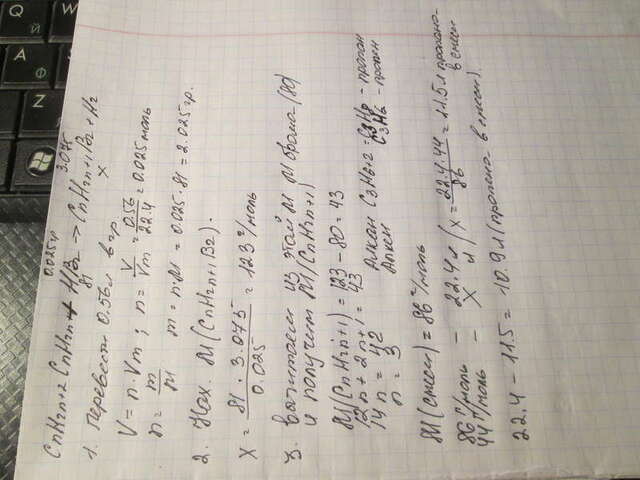 0.025гр 3.075
CnH2n+2 CnH2n + HBr → CnH2n+1Br + H2
81 x
1. Перевести 0.56л в гр.
V = n · Vm ; n = V/Vm = 0.56/22.4 = 0.025 моль
n = m/M m = n·M = 0.025·81 = 2.025 гр.
2. Нах. M(CnH2n+1Br).
X = 81 · 3.075 / 0.025 = 123 г/моль
3. вычитаем из этой M M брома (80)
и получим M(CnH2n+1)
M(CnH2n+1) = 123 - 80 = 43
12n + 2n + 1 = 43
14n = 42 Алкан C3H6+2 = C3H8 - пропан
n = 3 Алкен C3H6 - пропин
M(смеси) = 86 г/моль
86 г/моль - 22.4 л
44 г/моль - X л / X = 22.4·44/86 = 11.5 л пропана в смеси
22.4 - 11.5 = 10.9 л (пропена в смеси).
Q
Й
A
Ф
Z